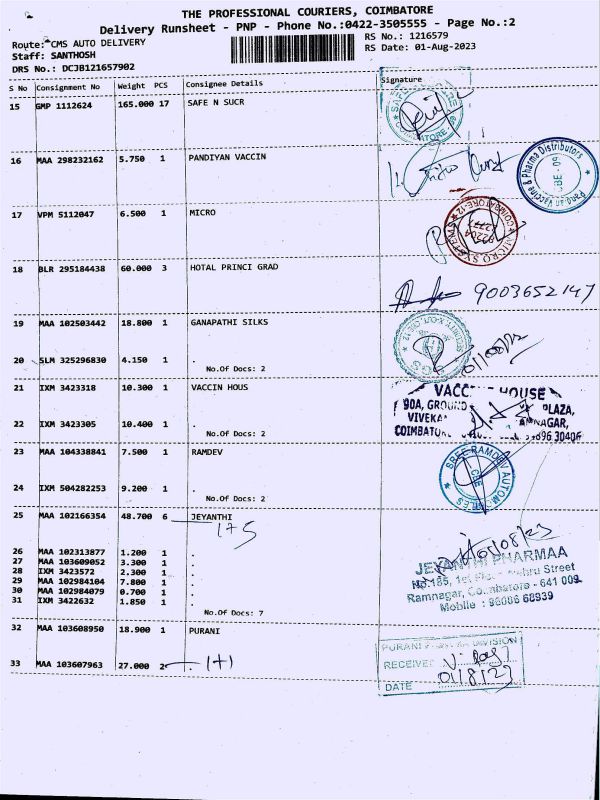 THE PROFESSIONAL COURIERS, COIMBATORE
Delivery Runsheet - PNP - Phone No.:0422-3505555 - Page No.:2
Route: CMS AUTO DELIVERY
RS No.: 1216579
Staff: SANTHOSH
RS Date: 01-Aug-2023
DRS No.: DCJB121657902
S No Consignment No Weight PCS Consignee Details Signature
15 GMP 1112624 165.000 17 SAFE N SUCR
16 MAA 298232162 5.750 1 PANDIYAN VACCIN
Pandian Vaccine & Pharma Distributors
CBE - 09
17 VPM 5112047 6.500 1 MICRO
18 BLR 295184438 60.000 3 HOTAL PRINCI GRAD
9003652147
19 MAA 102503442 18.800 1 GANAPATHI SILKS
20 SLM 325296830 4.150 1 .
No.Of Docs: 2
21 IXM 3423318 10.300 1 VACCIN HOUS
HOUSE
90A, GROUND
PLAZA,
22 IXM 3423305 10.400 1 .
No.Of Docs: 2
23 MAA 104338841 7.500 1 RAMDEV
SREE RAMDEV AUTOMOBILES
CBE
24 IXM 504282253 9.200 1 .
No.Of Docs: 2
25 MAA 102166354 48.700 6 JEYANTHI
1+5
26 MAA 102313877 1.200 1 .
27 MAA 103609052 3.300 1 .
28 IXM 3423572 2.300 1 .
29 MAA 102984104 7.800 1 .
30 MAA 102984079 0.700 1 .
31 IXM 3422632 1.850 1 .
No.Of Docs: 7
JEYANTHI PHARMAA
No.185, 1st Floor Nehru Street
Ramnagar, Coimbatore - 641 009.
Mobile : 98086 68939
32 MAA 103608950 18.900 1 PURANI
33 MAA 103607963 27.000 2 .
1+1
PURANI DIVISION
RECEIVED
DATE 01/8/23